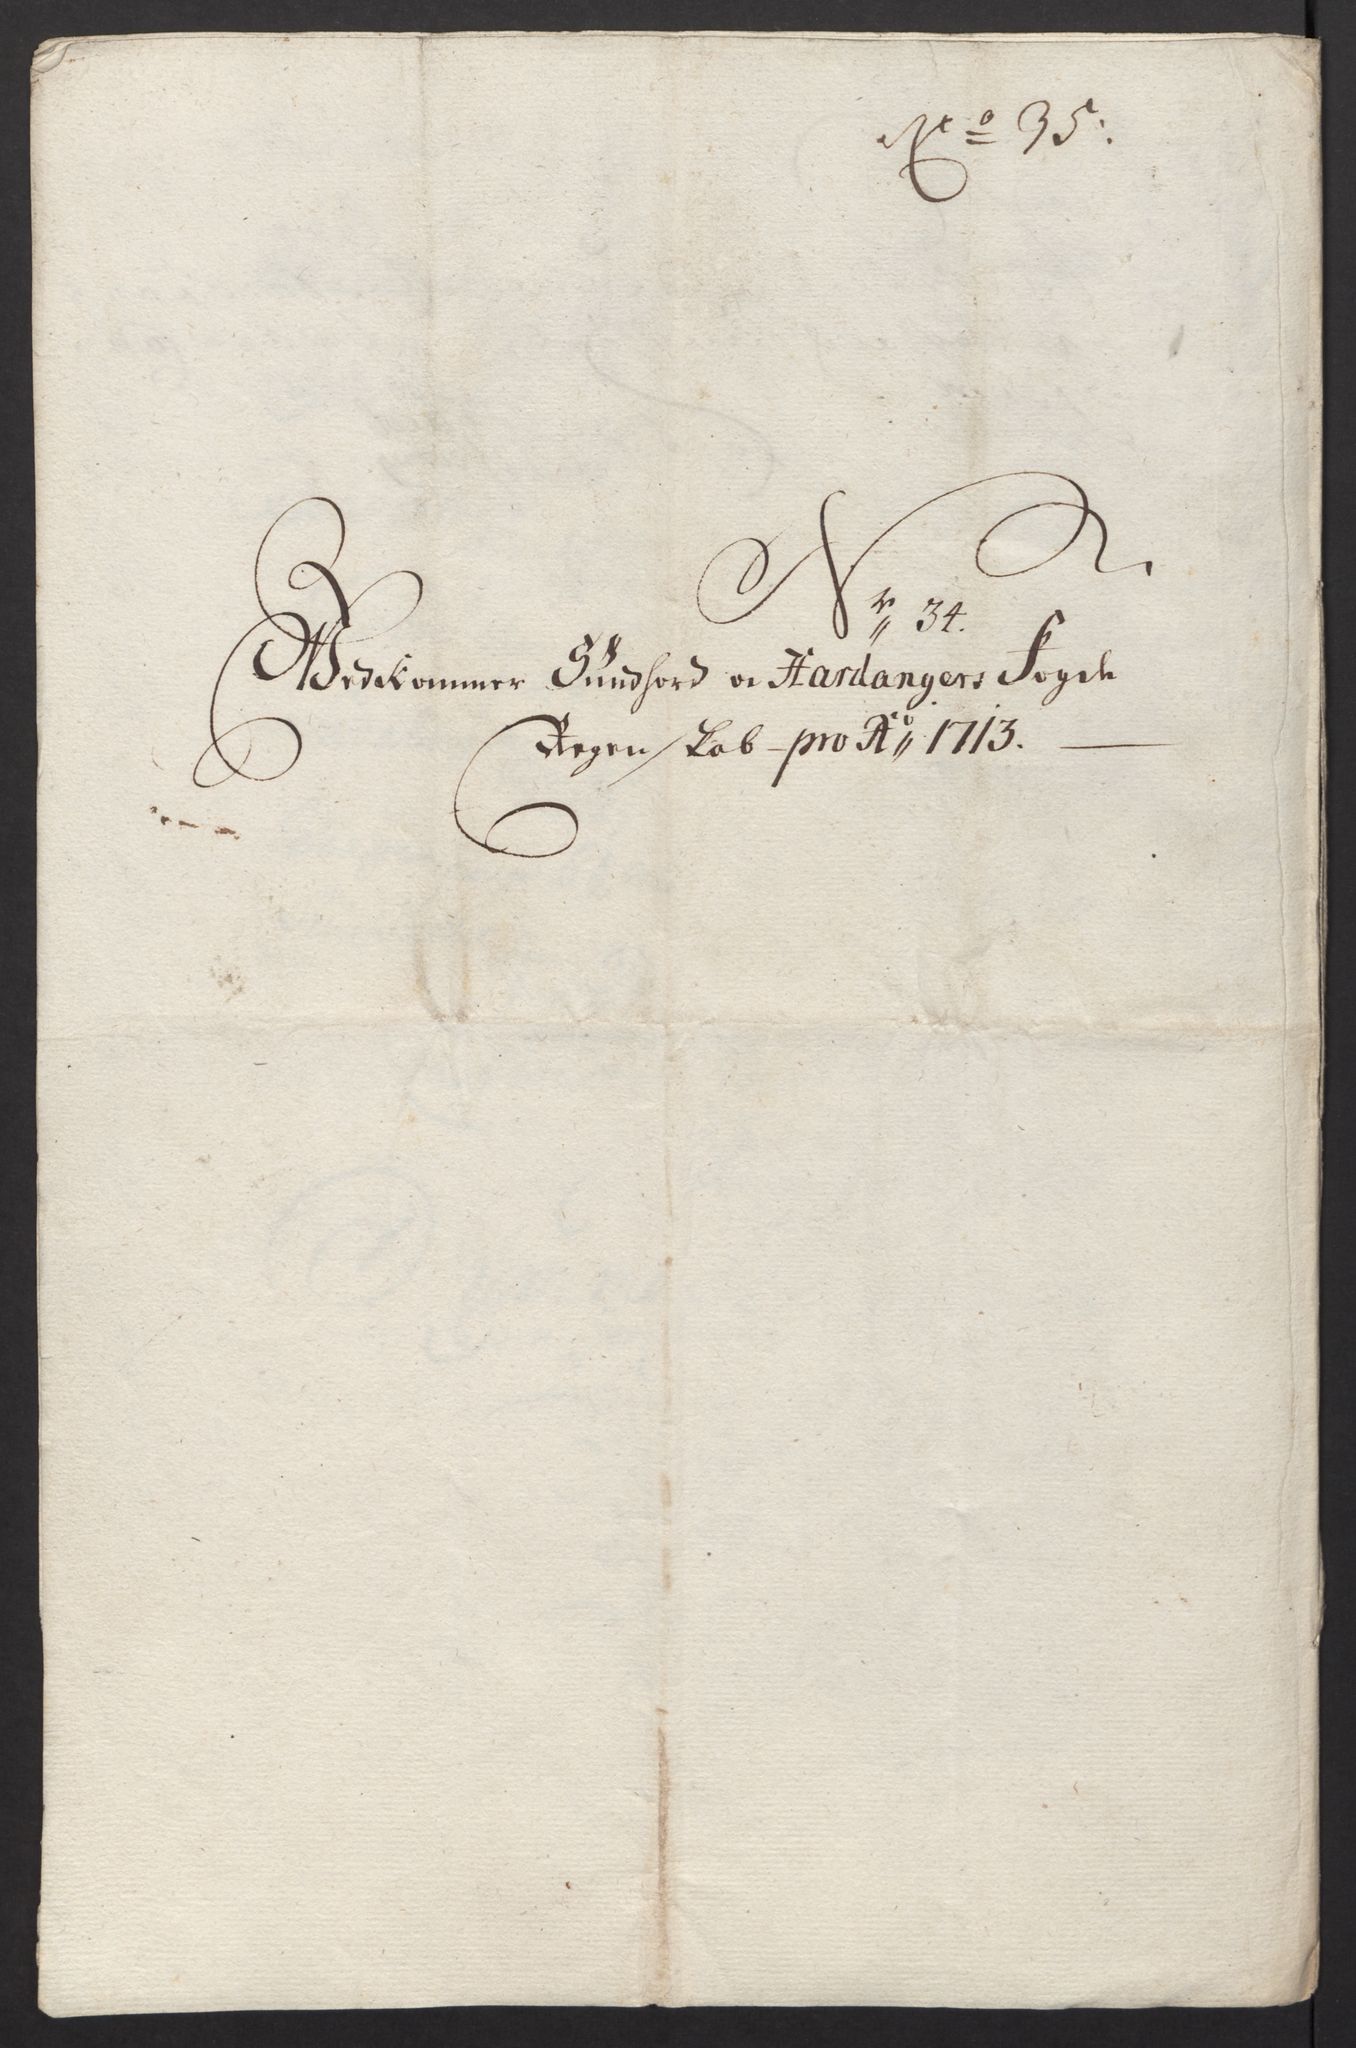 No 35.
Nr 34.
Vedkommer Sundhord oc Hardangers Fogde
Regenskab pro Ao 1713.